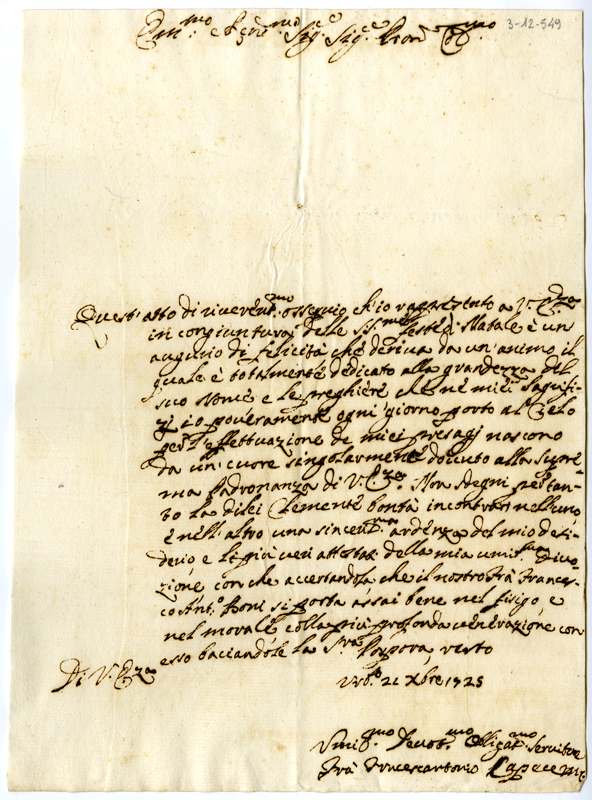 Em.mo e Rev.mo Sig.e Sig.e Pron Col.mo
3-12-549
Quest'atto di riverent.mo ossequio ch'io rappresento a V. Em.za
in congiuntura delle SS.me feste di Natale è un
augurio di felicità che deriva da un'animo il
quale è totalmente dedicato alla grandezza del
suo Nome e le preghiere che ne miei sagrifi-
zj io poveramente ogni giorno porto al Cielo
per l'effettuazione de miei presagj nascono
da un'cuore singolarmente dovuto alla supre-
ma Padronanza di V. Em.za. Non sdegni pertan-
to la dilei Clemente bontà incontrar nell'uno,
e nell'altro una sincerit.ma ardenza del mio desi-
derio, e li più veri attestati della mia umil.ma divo-
zione, con che accertandola, che il nostro Frà Frances-
co Ant.o Boni si porta assai bene nel fisigo, e
nel morale, colla più profonda venerazione con
esso baciandole la S.ra Porpora, resto
Di V. Em.za
Urb.o 21 Xbre 1725
Umil.mo Devot.mo Obligat.mo Servitore
Frà Francescantonio Capace